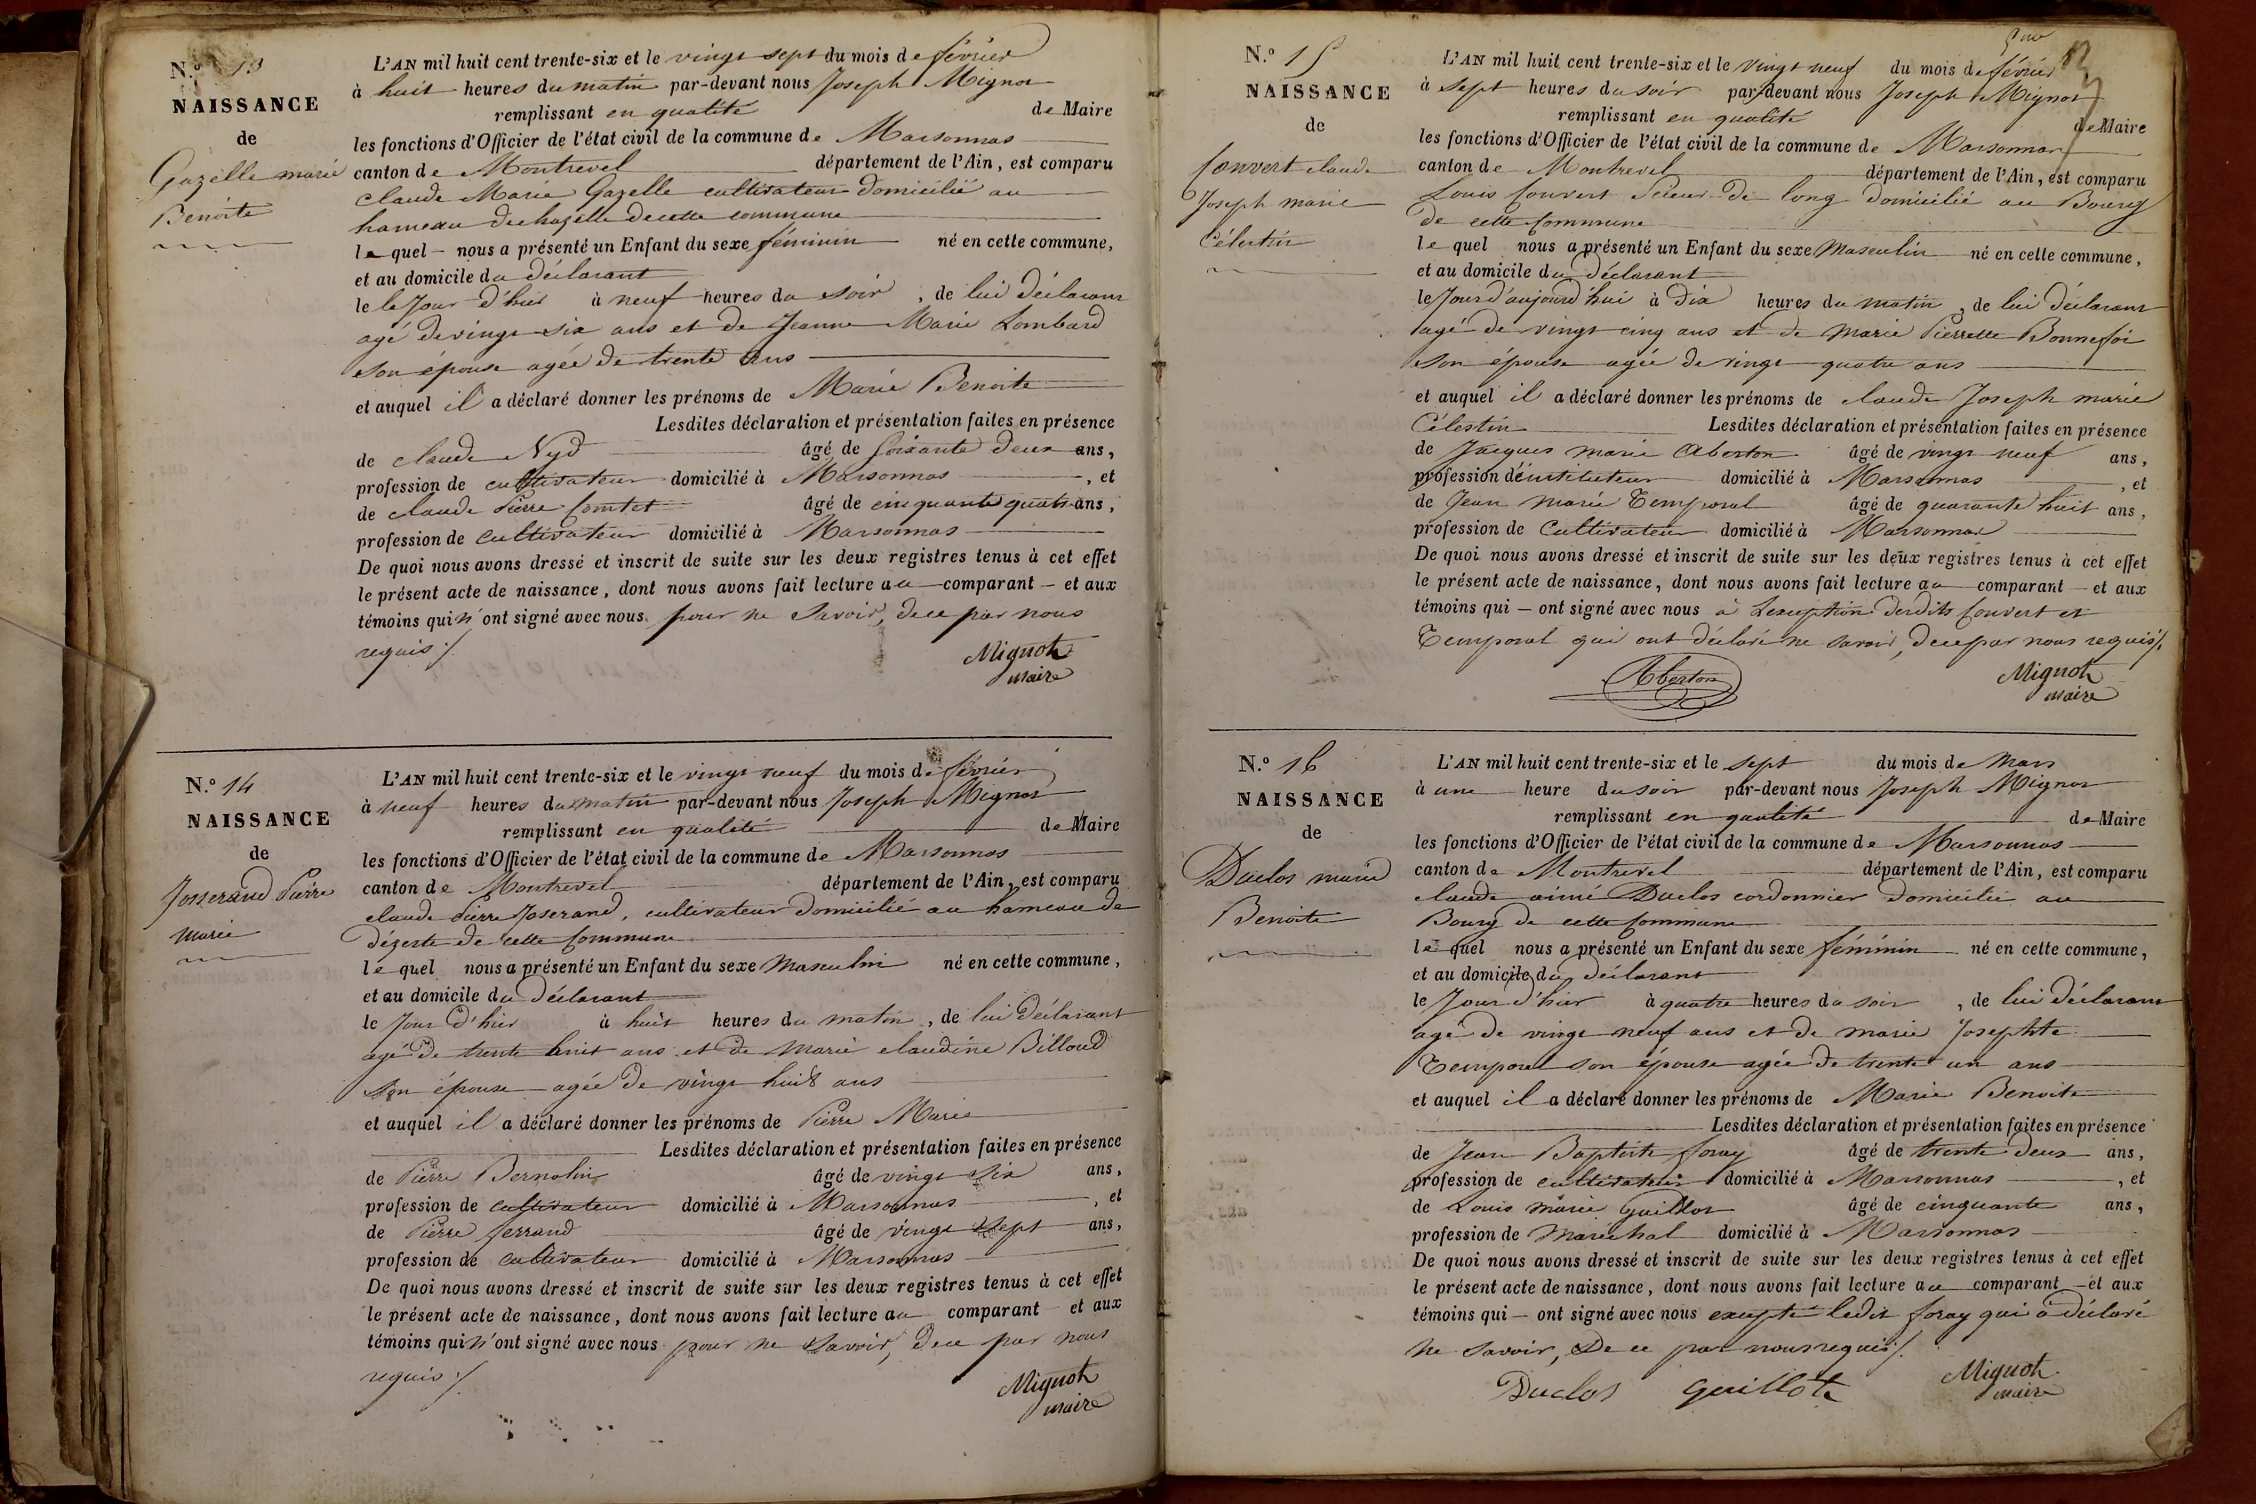 N.º 13
NAISSANCE
de
Gazelle marie
Benoite
L'AN mil huit cent trente-six et le vingt sept du mois de février
à huit heures du matin par-devant nous Joseph Mignot
remplissant en qualité de Maire
les fonctions d'Officier de l'état civil de la commune de Marsonnas
canton de Montrevel département de l'Ain, est comparu
claude Marie Gazelle cultivateur domicilié au
hameau de cette commune
le quel nous a présenté un Enfant du sexe féminin né en cette commune,
et au domicile du déclarant
le le Jour d'hier à neuf heures du soir, de lui déclarant
agé de vingt six ans et de Jeanne Marie Lombard
son épouse agée de trente ans
et auquel il a déclaré donner les prénoms de Marie Benoite
Lesdites déclaration et présentation faites en présence
de claude Nyd âgé de soixante deux ans,
profession de cultivateur domicilié à Marsonnas, et
de claude Pierre Comtet âgé de cinquante quatre ans,
profession de cultivateur domicilié à Marsonnas
De quoi nous avons dressé et inscrit de suite sur les deux registres tenus à cet effet
le présent acte de naissance, dont nous avons fait lecture au comparant et aux
témoins qui n'ont signé avec nous pour ne savoir, de ce par nous
requis ./.
Mignot
maire
N.º 14
NAISSANCE
de
Josserand Pierre
marie
L'AN mil huit cent trente-six et le vingt neuf du mois de février
à neuf heures du matin par-devant nous Joseph Mignot
remplissant en qualité de Maire
les fonctions d'Officier de l'état civil de la commune de Marsonnas
canton de Montrevel département de l'Ain, est comparu
claude Pierre Joserand, cultivateur domicilié au hameau de
dézerte de cette Commune
le quel nous a présenté un Enfant du sexe masculin né en cette commune,
et au domicile du déclarant
le Jour d'hier à huit heures du matin, de lui déclarant
agé de trente huit ans et de Marie claudine Billoud
son épouse agée de vingt huit ans
et auquel il a déclaré donner les prénoms de Pierre Marie
Lesdites déclaration et présentation faites en présence
de Pierre Bernolin âgé de vingt six ans,
profession de cultivateur domicilié à Marsonnas, et
de Pierre ferrand âgé de vingt sept ans,
profession de cultivateur domicilié à Marsonnas
De quoi nous avons dressé et inscrit de suite sur les deux registres tenus à cet effet
le présent acte de naissance, dont nous avons fait lecture au comparant et aux
témoins qui n'ont signé avec nous pour ne savoir, de ce par nous
requis ./.
Mignot
maire
N.º 15
NAISSANCE
de
Convert claude
Joseph marie
Célestin
L'AN mil huit cent trente-six et le vingt neuf du mois de février
à sept heures du soir par-devant nous Joseph Mignot
remplissant en qualité de Maire
les fonctions d'Officier de l'état civil de la commune de Marsonnas
canton de Montrevel département de l'Ain, est comparu
Louis Convert scieur de long domicilié au Bourg
de cette Commune
le quel nous a présenté un Enfant du sexe masculin né en cette commune,
et au domicile du déclarant
le Jour d'aujourd'hui à dix heures du matin, de lui déclarant
agé de vingt cinq ans et de marie Pierrette Bonnefoi
son épouse agée de vingt quatre ans
et auquel il a déclaré donner les prénoms de claude Joseph marie
Célestin Lesdites déclaration et présentation faites en présence
de Jacques marie Aberton âgé de vingt neuf ans,
profession d'instituteur domicilié à Marsonnas, et
de Jean marie Temporal âgé de quarante huit ans,
profession de Cultivateur domicilié à Marsonnas
De quoi nous avons dressé et inscrit de suite sur les deux registres tenus à cet effet
le présent acte de naissance, dont nous avons fait lecture au comparant et aux
témoins qui ont signé avec nous à l'exception desdits Convert et
Temporal qui ont déclaré ne savoir, de ce par nous requis ./.
Aberton
Mignot
maire
N.º 16
NAISSANCE
de
Duclos marie
Benoite
L'AN mil huit cent trente-six et le sept du mois de mars
à une heure du soir par-devant nous Joseph Mignot
remplissant en qualité de Maire
les fonctions d'Officier de l'état civil de la commune de Marsonnas
canton de Montrevel département de l'Ain, est comparu
claude aimé Duclos cordonnier domicilié au
Bourg de cette Commune
le quel nous a présenté un Enfant du sexe féminin né en cette commune,
et au domicile du déclarant
le Jour d'hier à quatre heures du soir, de lui déclarant
agé de vingt neuf ans et de marie Josephte
Temporal son épouse agée de trente un ans
et auquel il a déclaré donner les prénoms de Marie Benoite
Lesdites déclaration et présentation faites en présence
de Jean Baptiste foray âgé de trente deux ans,
profession de cultivateur domicilié à Marsonnas, et
de Louis marie Guillot âgé de cinquante ans,
profession de maréchal domicilié à Marsonnas
De quoi nous avons dressé et inscrit de suite sur les deux registres tenus à cet effet
le présent acte de naissance, dont nous avons fait lecture au comparant et aux
témoins qui ont signé avec nous excepté ledit foray qui a déclaré
ne savoir, De ce par nous requis ./.
Duclos Guillot
Mignot
maire